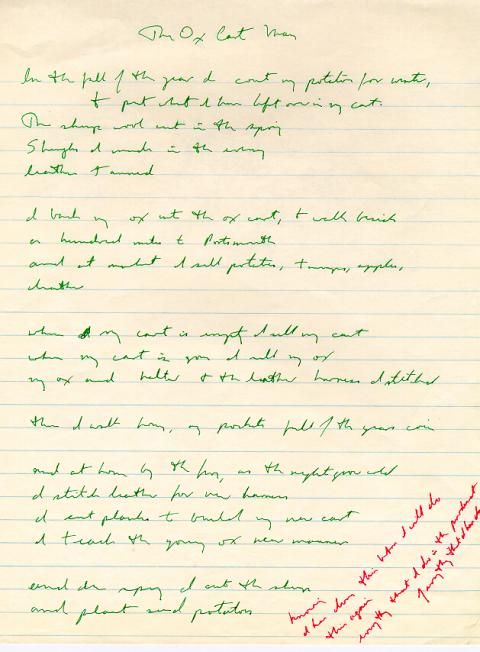 The Ox Cart Man
In the fall of the year I count my potatoes for winter,
& put what I have left over in my cart.
The sheeps wool cut in the spring
Shingles I made in the evening
leather I tanned
I back my ox into the ox cart, & walk beside
a hundred miles to Portsmouth
and at market I sell potatoes, turnips, apples,
leather
when my cart is empty I sell my cart
when my cart is gone I sell my ox
my ox and halter & the leather harness I stitched
then I walk home, my pockets full of the years coin
and at home by the fire, as the night grows cold
I stitch leather for new harness
I cut planks to build my new cart
I teach the young ox new manners
and in spring I cut the sheep
and plant seed potatoes
knowing
I have done this before I will do
this again
everything that I do in the